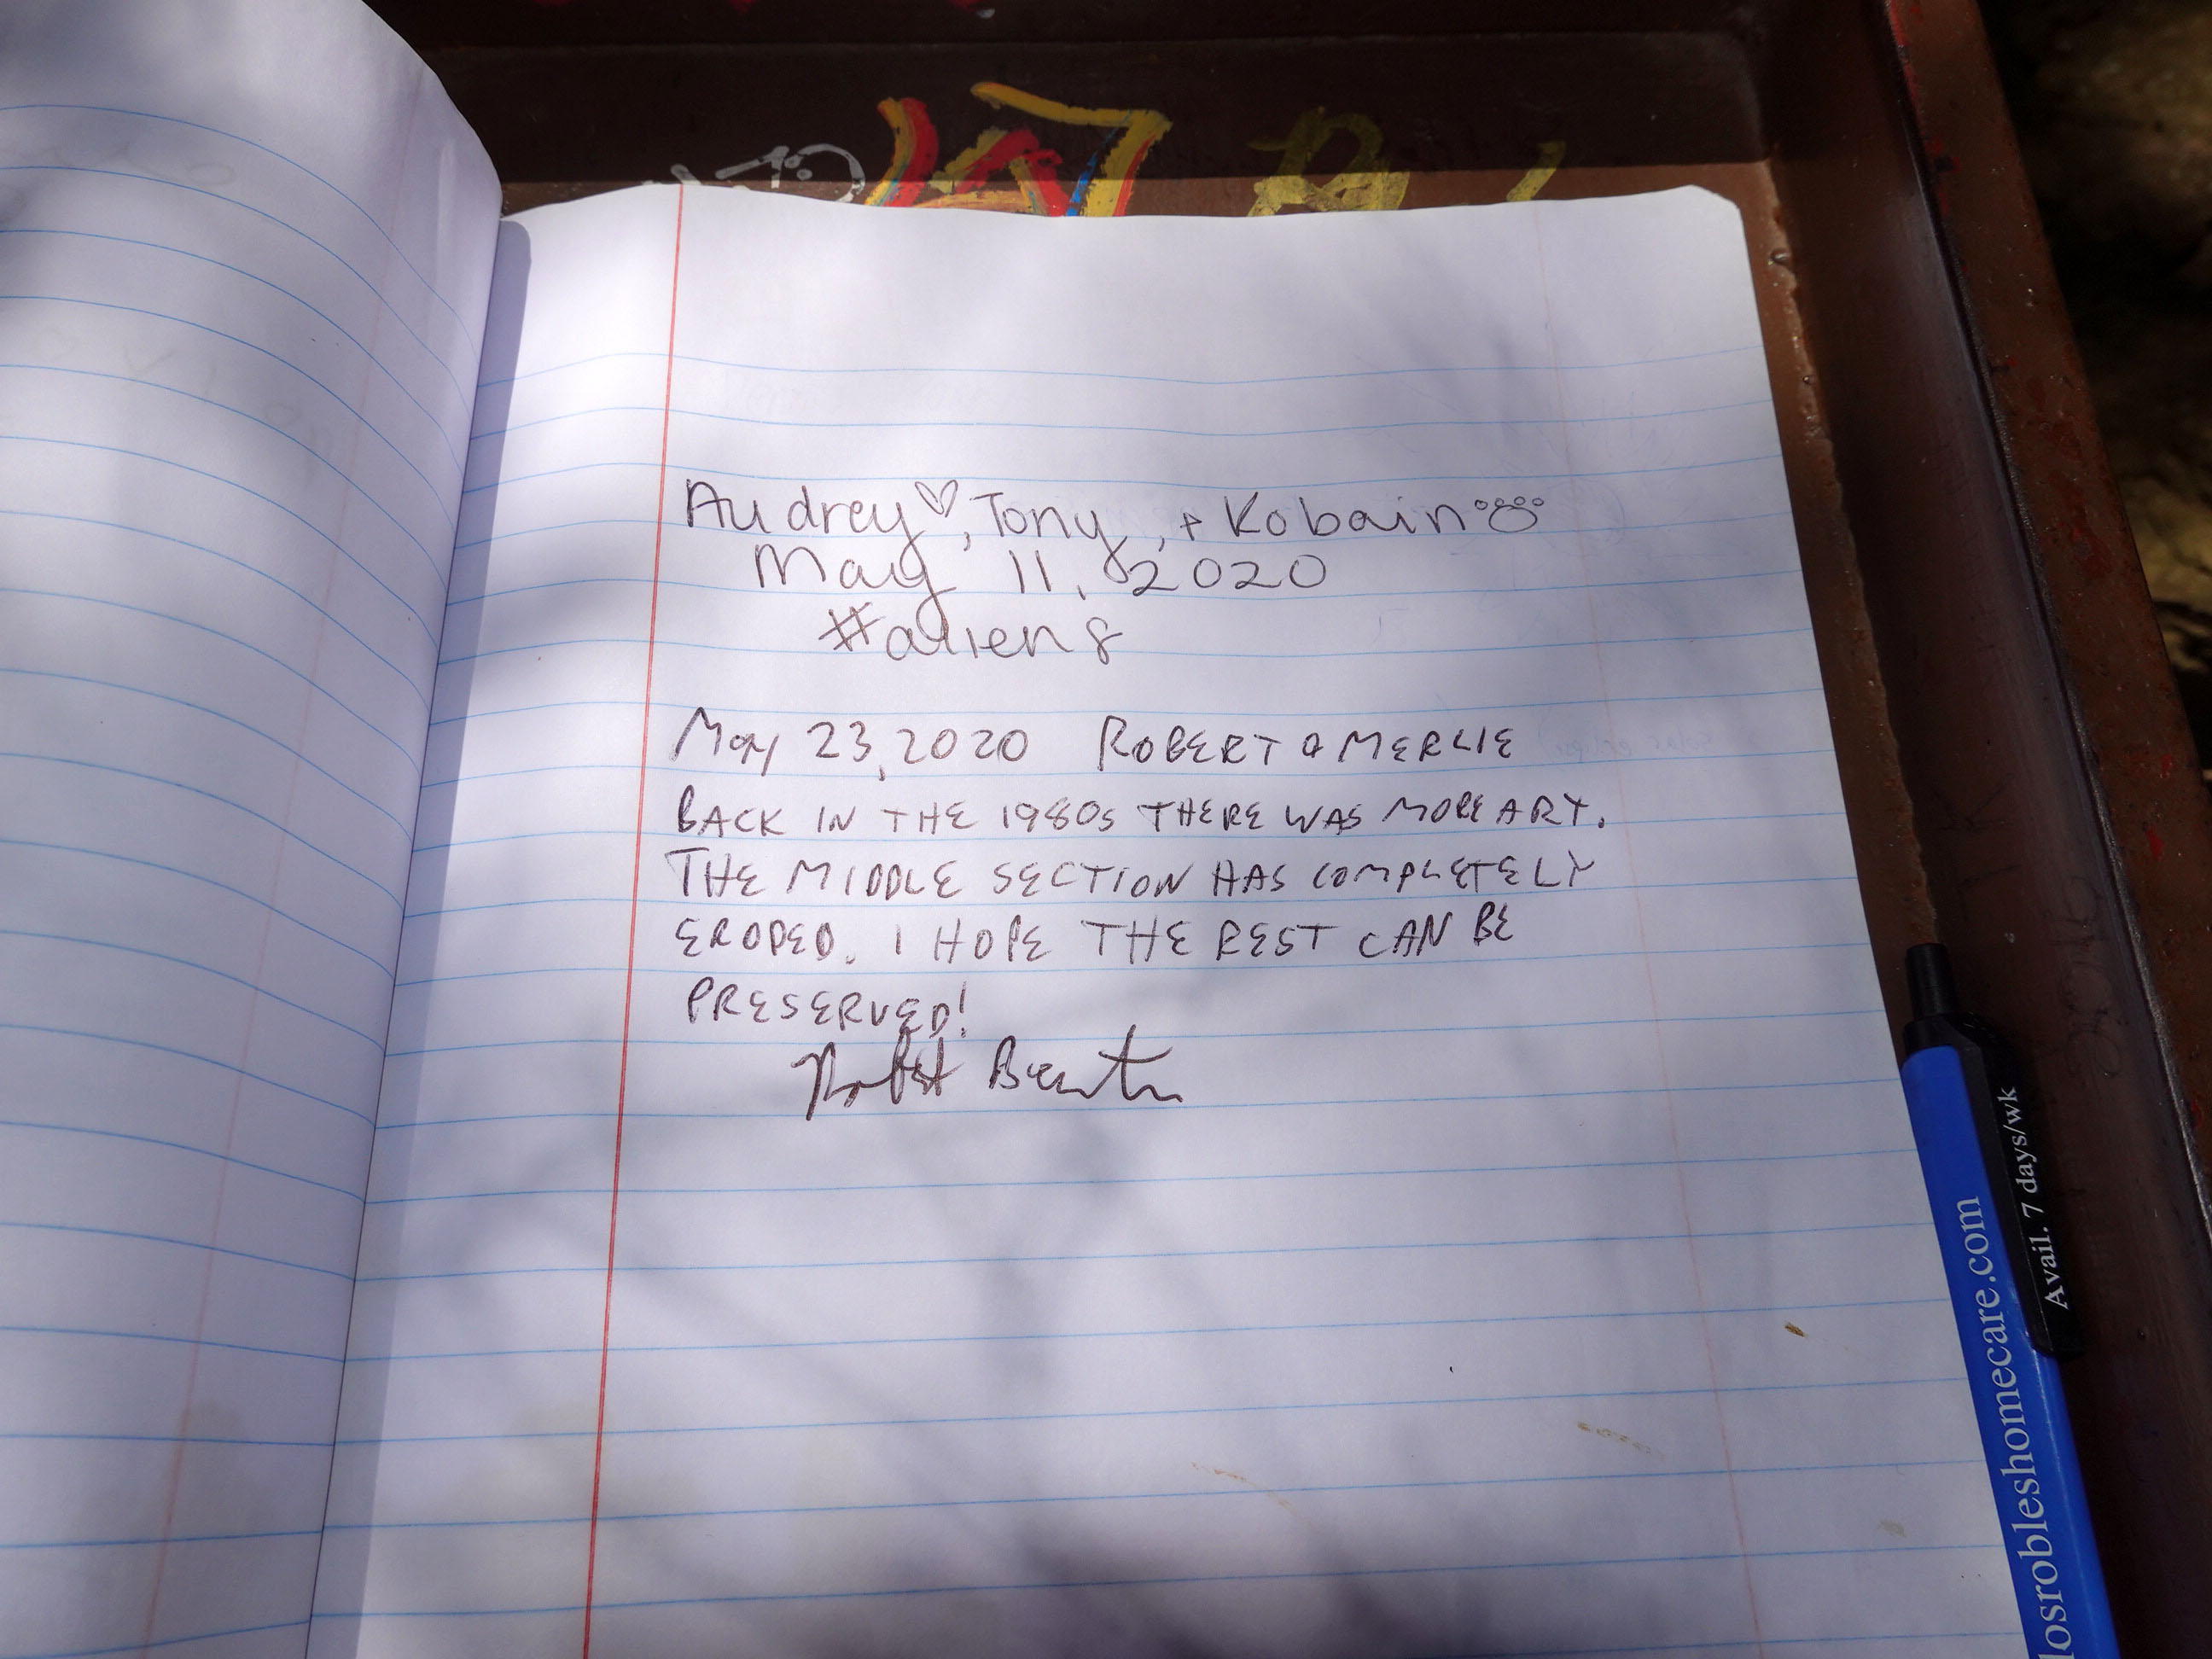 Audrey♡, Tony, + Kobain
May 11, 2020
#aliens
May 23, 2020 ROBERT & MERLIE
BACK IN THE 1980s THERE WAS MORE ART.
THE MIDDLE SECTION HAS COMPLETELY
ERODED. I HOPE THE REST CAN BE
PRESERVED!
losrobleshomecare.com
Avail. 7 days/wk